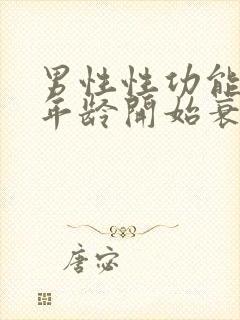 男性性功能
年龄開始衰
唐宓